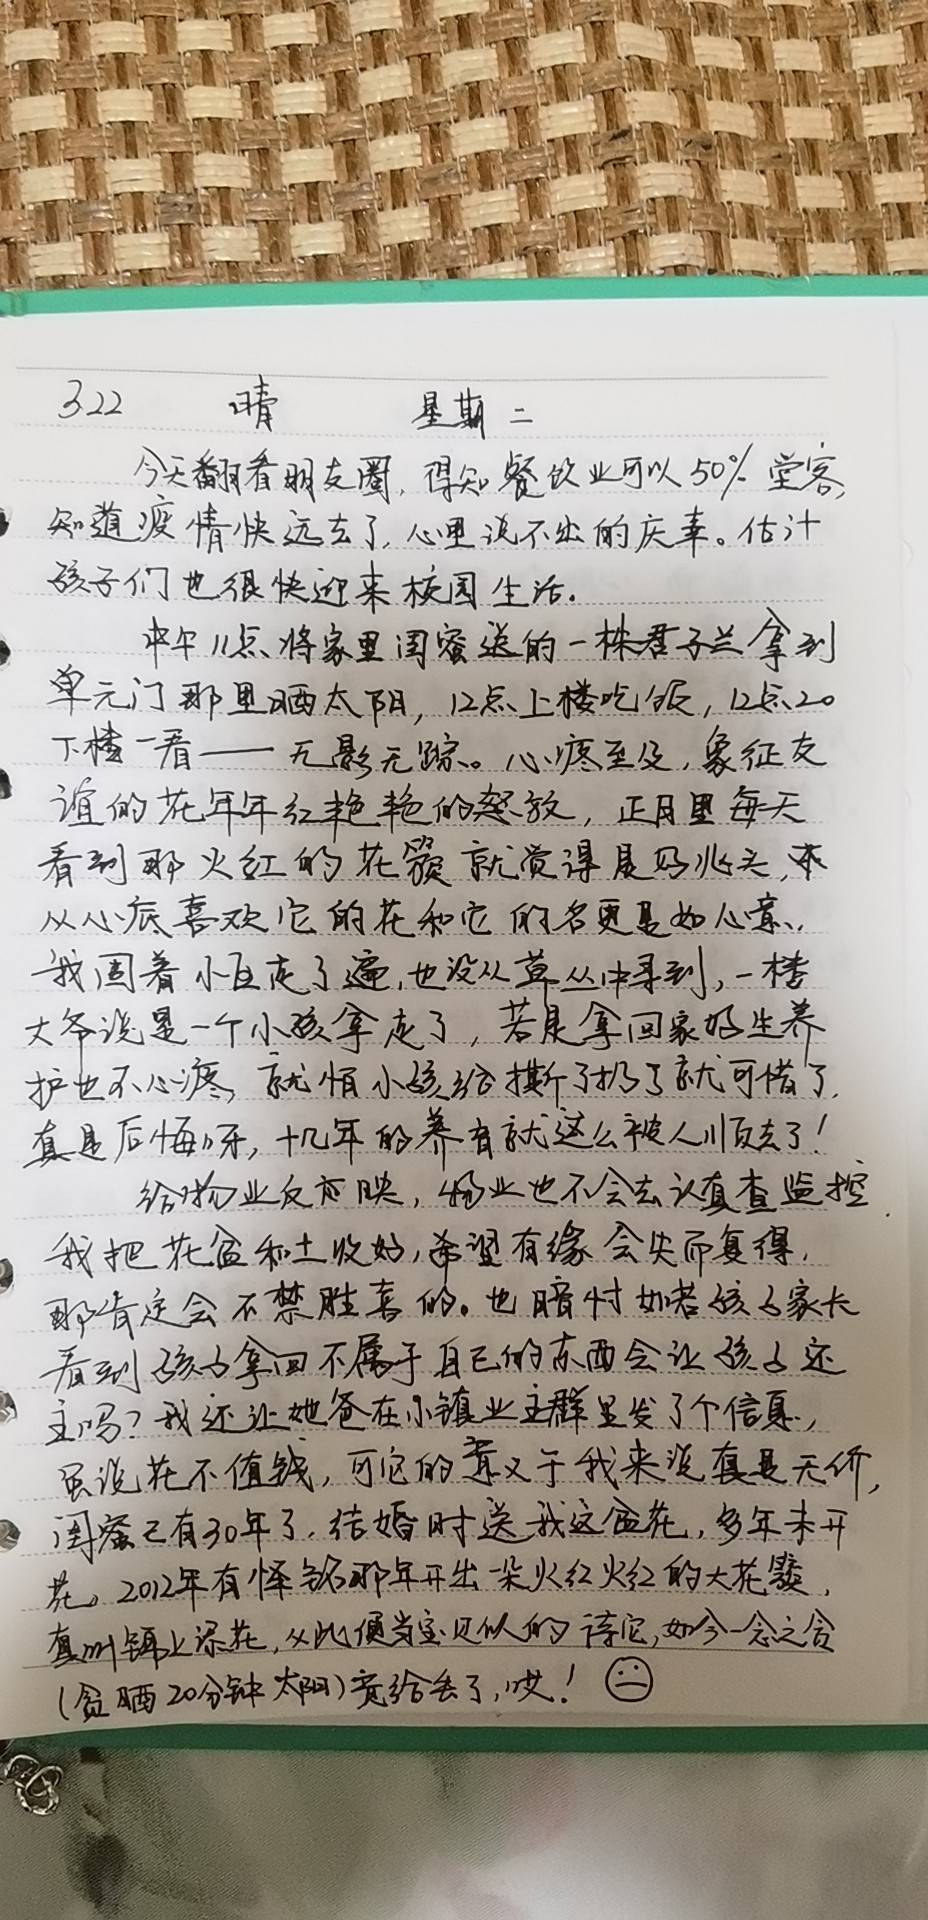 3.22 晴 星期二
今天翻看朋友圈,得知餐饮业可以50%堂客,
知道疫情快远去了,心里说不出的庆幸。估计
孩子们也很快迎来校园生活.
中午11点将家里闺蜜送的一株君子兰拿到
单元门那里晒太阳,12点上楼吃饭,12点20
下楼一看——无影无踪。心疼至及,象征友
谊的花年年红艳艳的怒放,正月里每天
看到那火红的花簇就觉得是好兆头,
从心底喜欢它的花和它的名更是如心意.
我围着小区走了遍,也没从草丛中寻到,一楼
大爷说是一个小孩拿走了,若是拿回家好生养
护也不心疼,就怕小孩给撕了扔了就可惜了.
真是后悔呀,十几年的养育就这么被人顺去了!
给物业反应映,物业也不会去认真查监控.
我把花盆和土收好,希望有缘会失而复得,
那肯定会不禁胜喜的。也暗忖如若孩子家长
看到孩子拿回不属于自己的东西会让孩子还
主吗?我还让她爸在小镇业主群里发了个信息,
虽说花不值钱,可它的意义于我来说真是无价,
闺蜜已有30年了,结婚时送我这盆花,多年未开
花。2012年有怿铭那年开出一朵火红火红的大花簇,
真叫锦上添花,从此便当宝贝似的待它,如今一念之贪
(贪晒20分钟太阳)竟给丢了,哎!